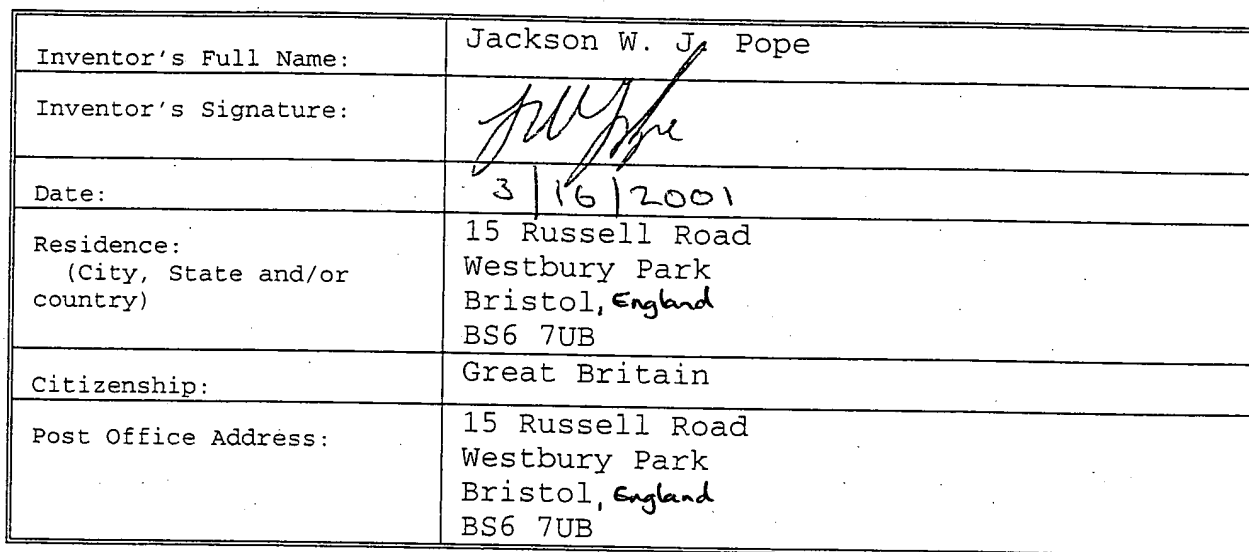 Inventor's Full Name: Jackson W. J. Pope
Inventor's Signature:
Date: 3/16/2001
Residence:
(City, State and/or
country)
15 Russell Road
Westbury Park
Bristol, England
BS6 7UB
Citizenship: Great Britain
Post Office Address:
15 Russell Road
Westbury Park
Bristol, England
BS6 7UB